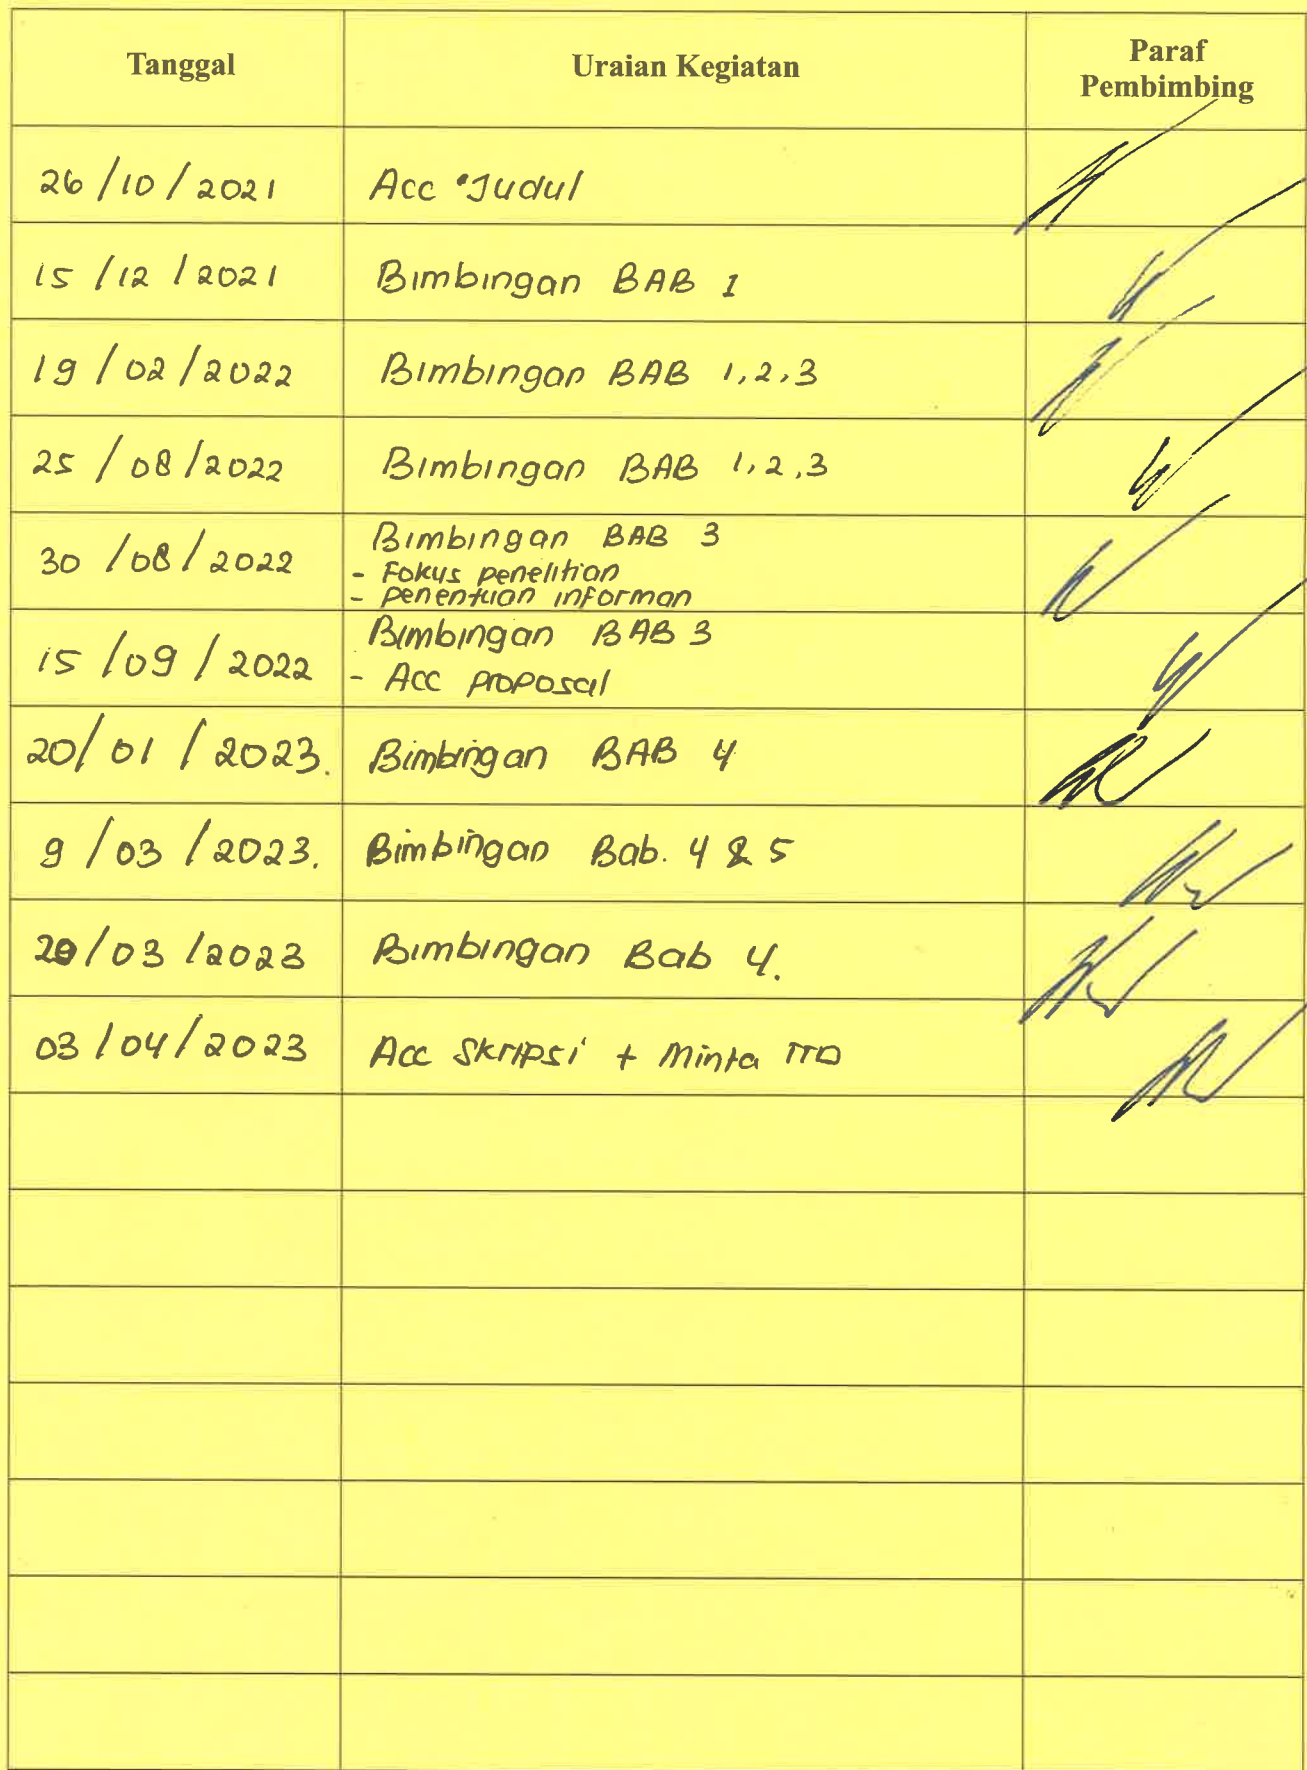 Tanggal
Uraian Kegiatan
Paraf
Pembimbing
26/10/2021
Acc Judul
15/12/2021
Bimbingan BAB 1
19/02/2022
Bimbingan BAB 1,2,3
25/08/2022
Bimbingan BAB 1,2,3
30/08/2022
Bimbingan BAB 3
- Fokus penelitian
- penentuan informan
15/09/2022
Bimbingan BAB 3
- Acc proposal
20/01/2023.
Bimbingan BAB 4
9/03/2023.
Bimbingan Bab. 4 & 5
20/03/2023
Bimbingan Bab 4.
03/04/2023
Acc Skripsi + Minta TTD